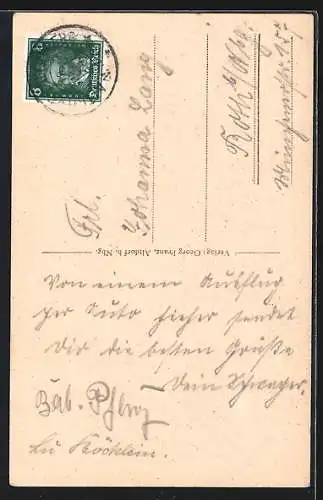 Frl.
Johanna Lang
Roth b/Nbg.
Verlag Georg Franz, Altdorf b. Nbg.
Von einem Ausflug
per Auto hieher sendet
Dir die besten Grüße
– Dein Schwager.
Bab.
Deutsches Reich
8